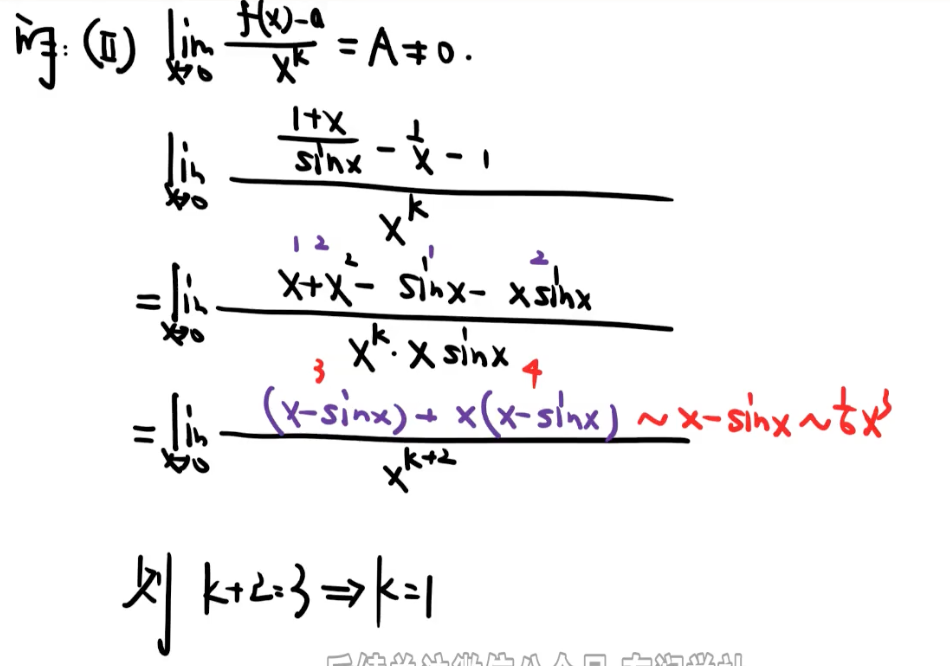 解: (II) lim_{x→0} (f(x)-a)/(x^k) = A ≠ 0.
lim_{x→0} ((1+x)/(sinx) - 1/x - 1)/(x^k)
1 2 1 2
= lim_{x→0} (x+x^2 - sinx - xsinx)/(x^k · x sinx)
3 4
= lim_{x→0} ((x-sinx) + x(x-sinx))/(x^{k+2}) ~ x-sinx ~ 1/6 x^3
则 k+2=3 ⇒ k=1